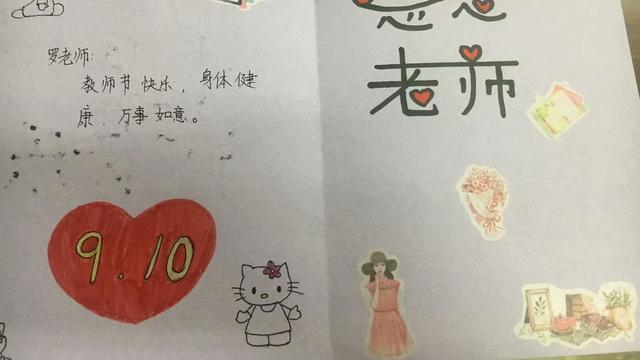 罗老师:
教师节快乐，身体健
康、万事如意。
9.10
老师